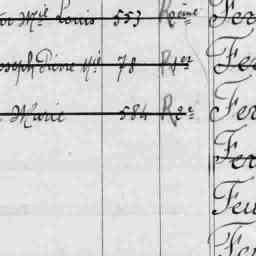 Mie Louis 553 Racine Fer
Joseph Pierre Mie 78 Fer
Marie 584 Fer
Fer
Feu
Fer